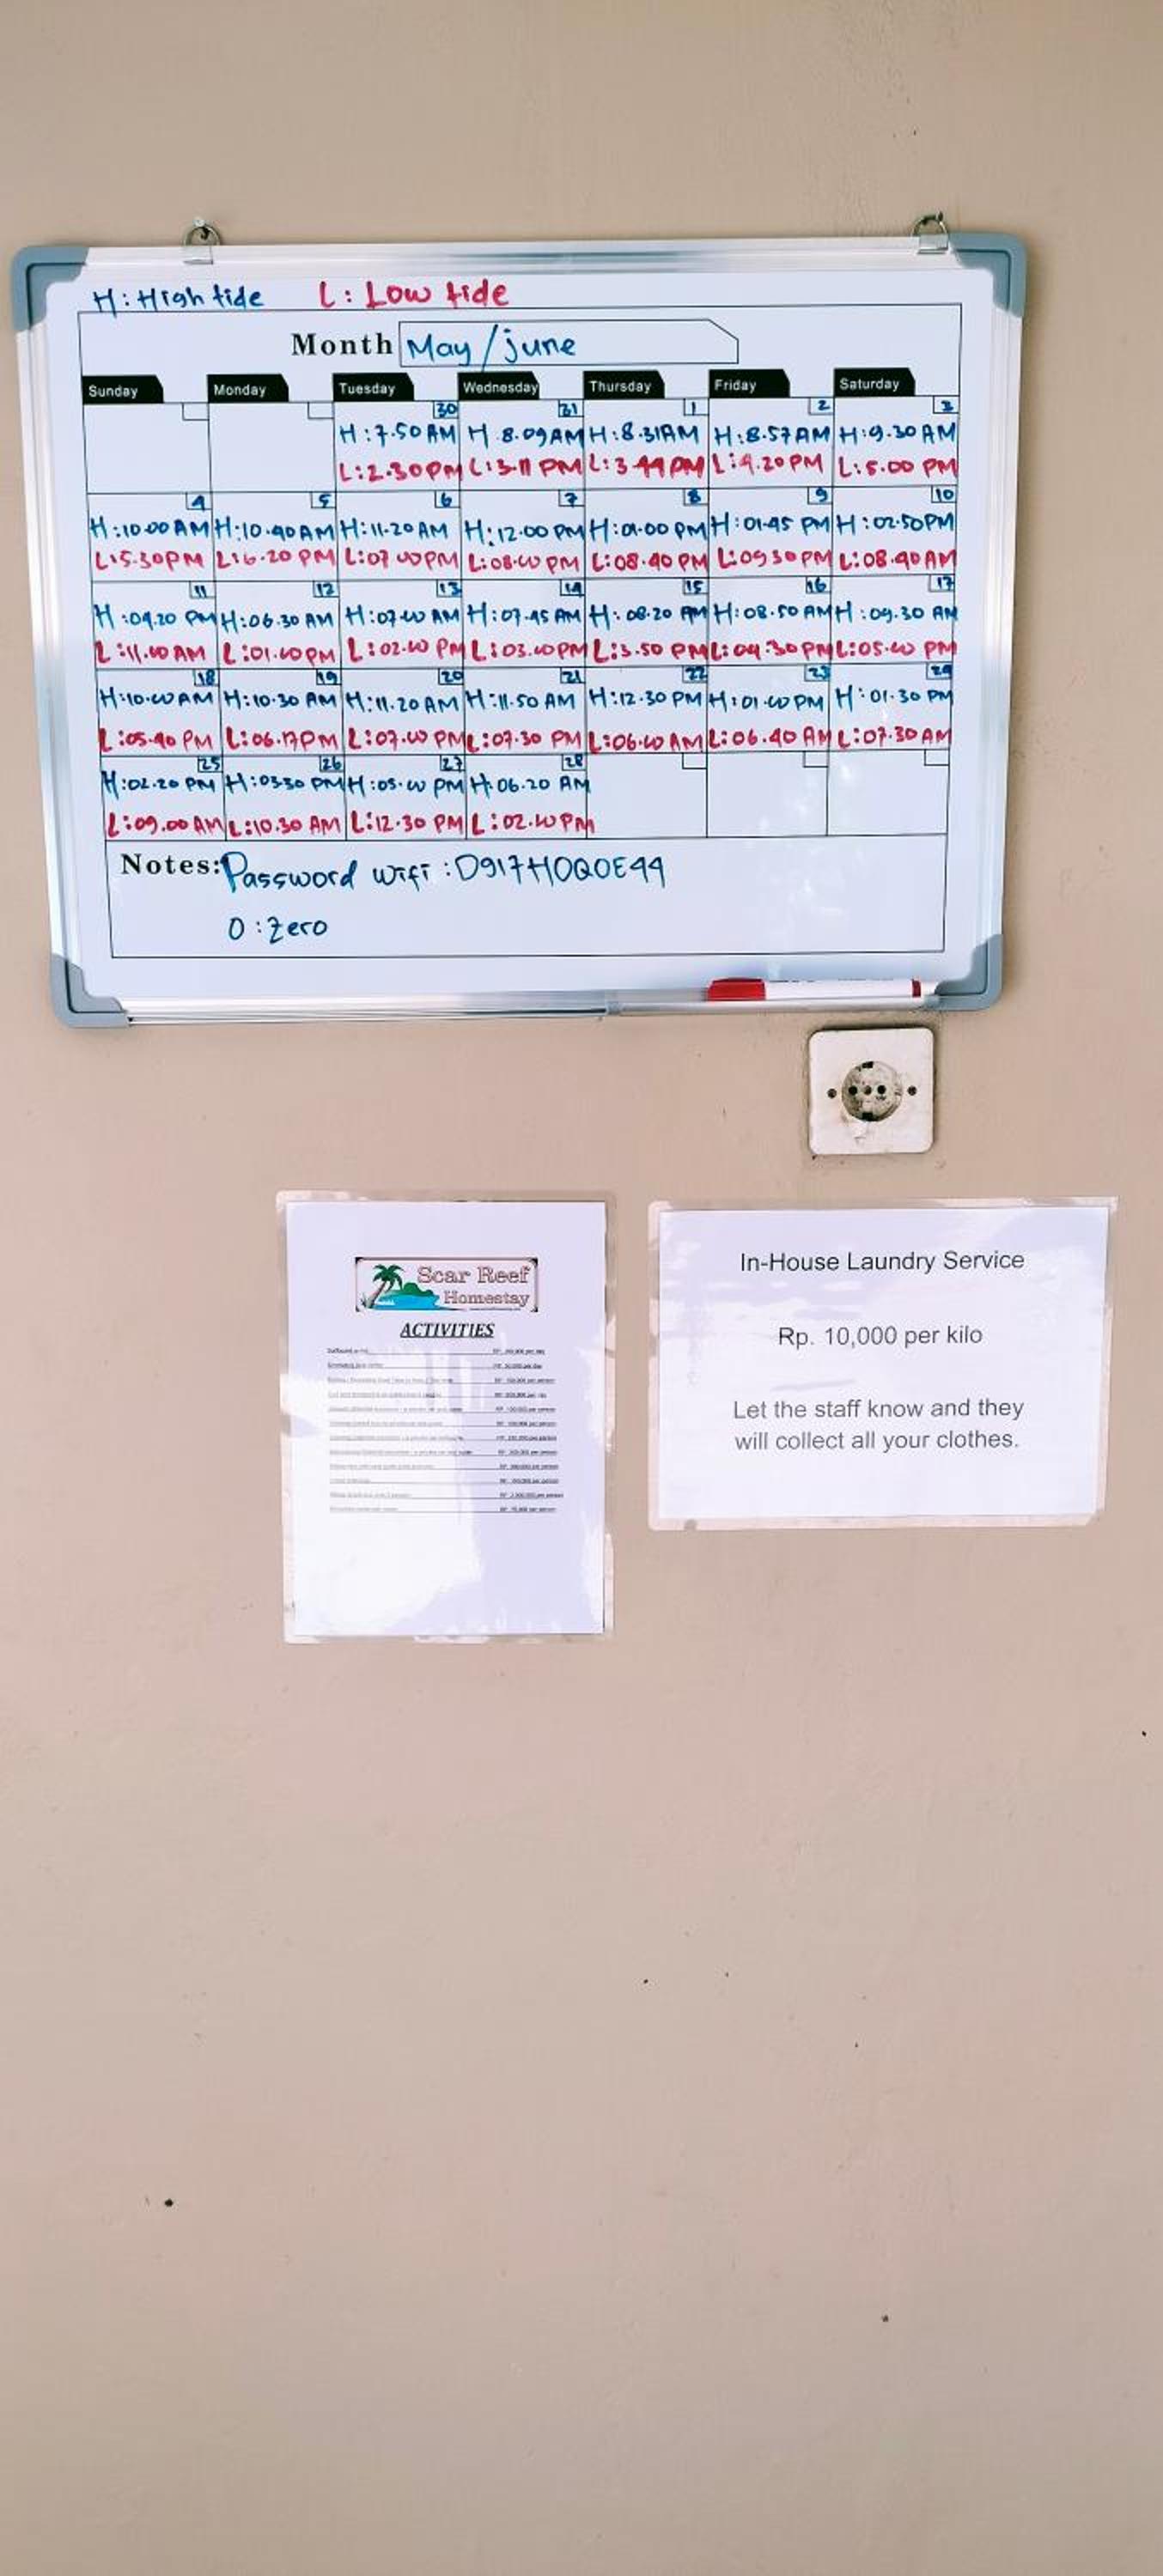 H: High tide L: Low tide
Month May/june
Sunday Monday Tuesday Wednesday Thursday Friday Saturday
30 31 1 2 3
H:7.50 AM H 8.09AM H:8.31AM H:8.57AM H:9.30 AM
L:2.30PM L:3.11 PM L:3.44PM L:4.20PM L:5.00 PM
4 5 6 7 8 9 10
H:10.00 AM H:10.40AM H:11.20 AM H:12.00 PM H:01.00 PM H:01.45 PM H:02.50PM
L:5.30PM L:6.20 PM L:07.00PM L:08.00 PM L:08.40 PM L:0930PM L:08.40AM
11 12 13 14 15 16 17
H:04.20 PM H:06.30 AM H:07.00 AM H:07.45 AM H:08.20 AM H:08.50 AM H:09.30 AM
L:11.00 AM L:01.00PM L:02.00 PM L:03.00PM L:3.50 PM L:04:30PM L:05.00 PM
18 19 20 21 22 23 24
H:10.00AM H:10.30 AM H:11.20AM H:11.50 AM H:12.30 PM H:01.00 PM H:01.30 PM
L:05.40 PM L:06.17PM L:07.00 PM L:07.30 PM L:06.00AM L:06.40 AM L:07.30AM
25 26 27 28
H:02.20 PM H:0330 PM H:05.00 PM H:06.20 AM
L:09.00 AM L:10.30 AM L:12.30 PM L:02.00PM
Notes: Password wifi :D917H0Q0E44
0 : Zero
Scar Reef
Homestay
ACTIVITIES
In-House Laundry Service
Rp. 10,000 per kilo
Let the staff know and they
will collect all your clothes.